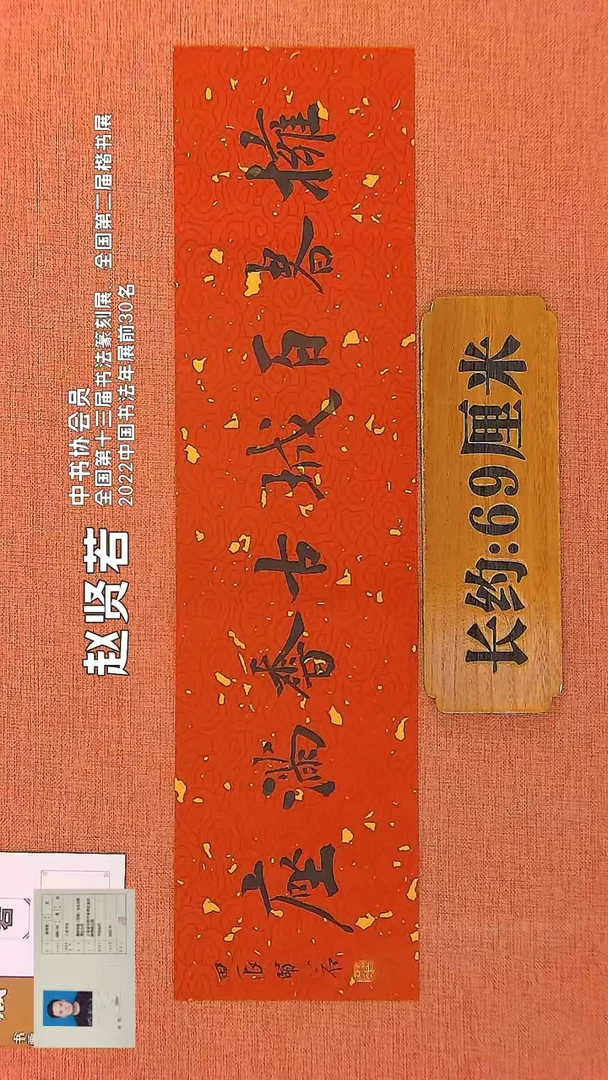 赵贤若
中书协会员
全国第十三届书法篆刻展、全国第二届楷书展
2022中国书法年展前30名
擁書百城古香滿座
长约:69厘米